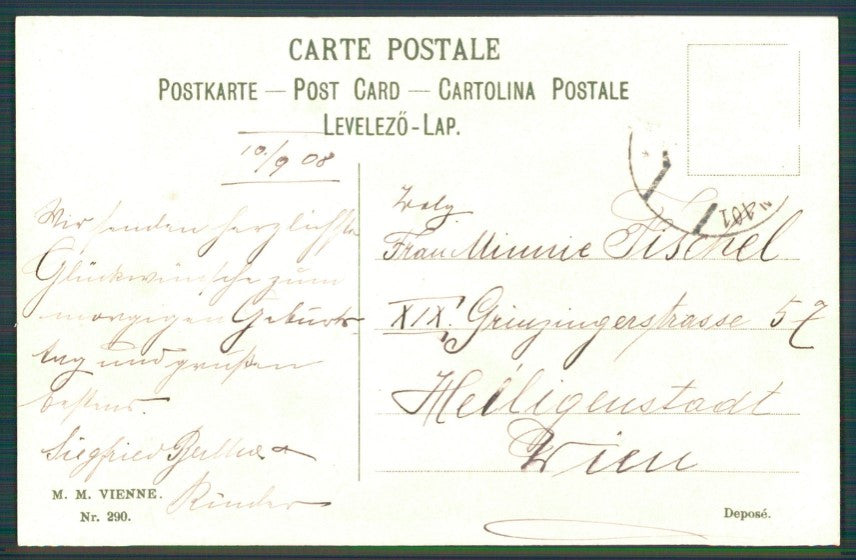 CARTE POSTALE
POSTKARTE — POST CARD — CARTOLINA POSTALE
LEVELEZŐ-LAP.
10/9 08
Wir senden herzlichste
Glückwünsche zum
morgigen Geburts-
tag und grüßen
bestens.
Siegfried &
Kinder
M. M. VIENNE.
Nr. 290.
Frau Minnie Tischel
XIX. Grinzingerstrasse 57
Heiligenstadt
Wien
Deposé.